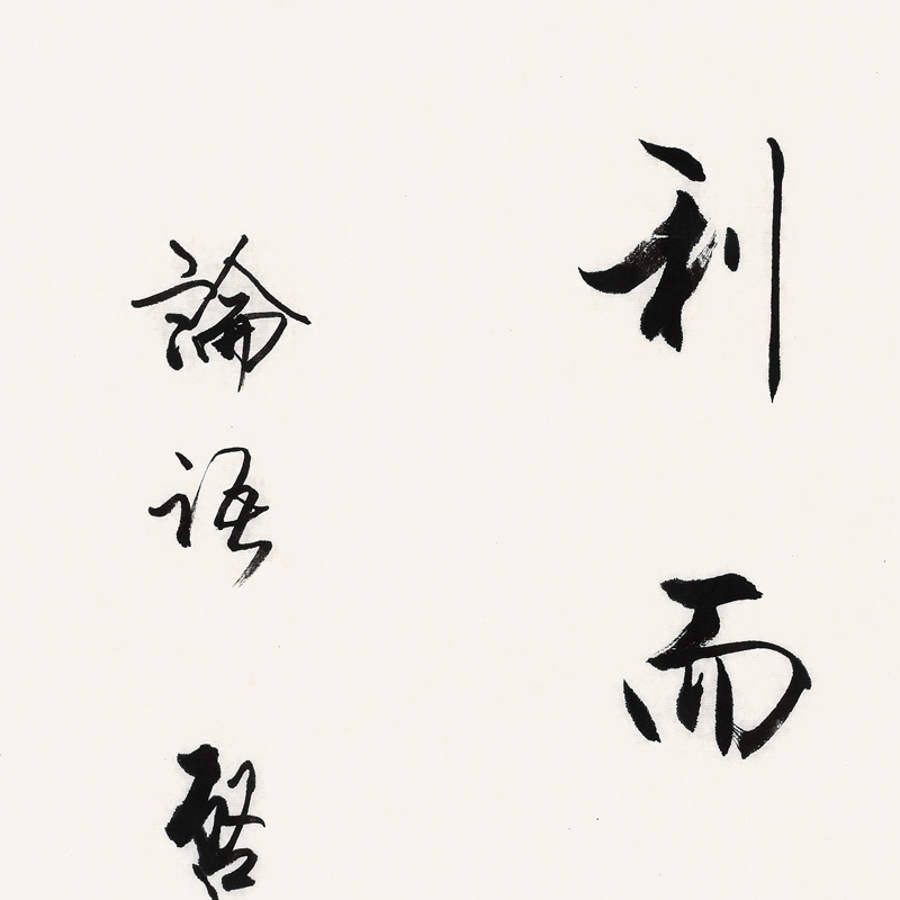 利而
論語